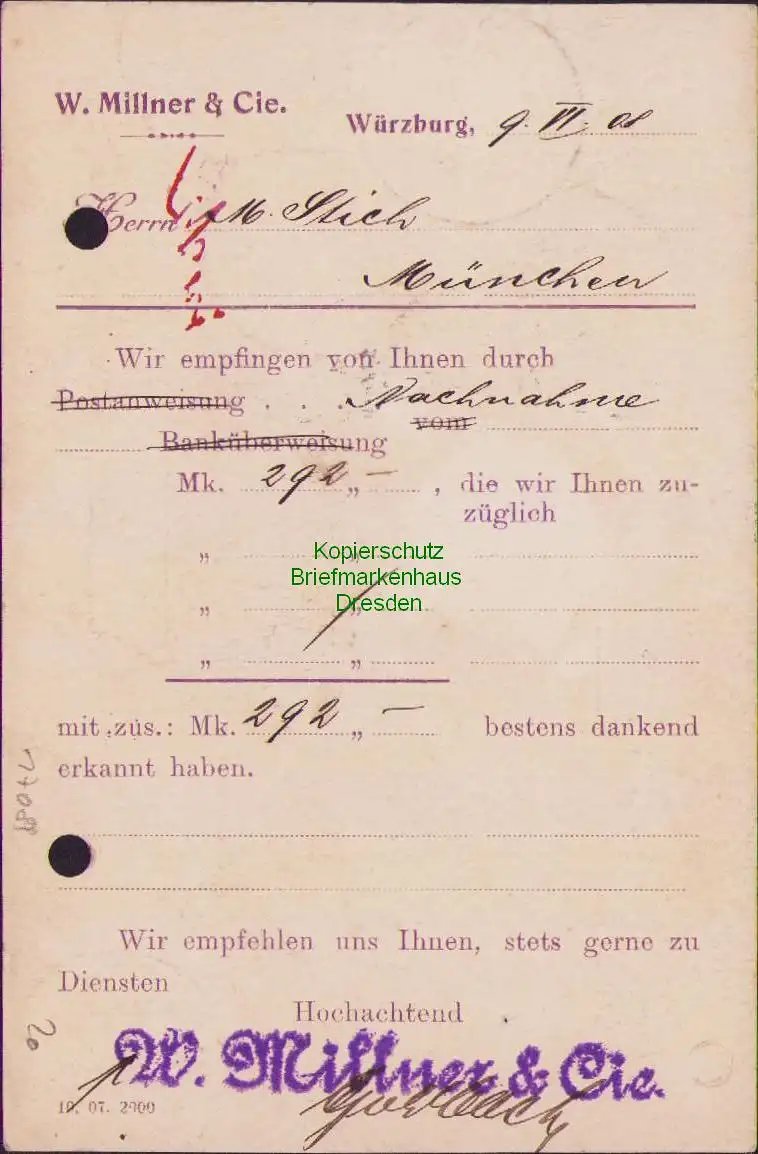 W. Millner & Cie.
Würzburg, 9. VI. 08
Herrn M. Stich
München
Wir empfingen von Ihnen durch
Postanweisung . . . Nachnahme
vom
Banküberweisung
Mk. 292 „ – , die wir Ihnen zu-
züglich
„ „
Kopierschutz
Briefmarkenhaus
Dresden
„ „
„ „
mit zus.: Mk. 292 „ – bestens dankend
erkannt haben.
Wir empfehlen uns Ihnen, stets gerne zu
Diensten
Hochachtend
W. Millner & Cie.
10. 07. 2000
20